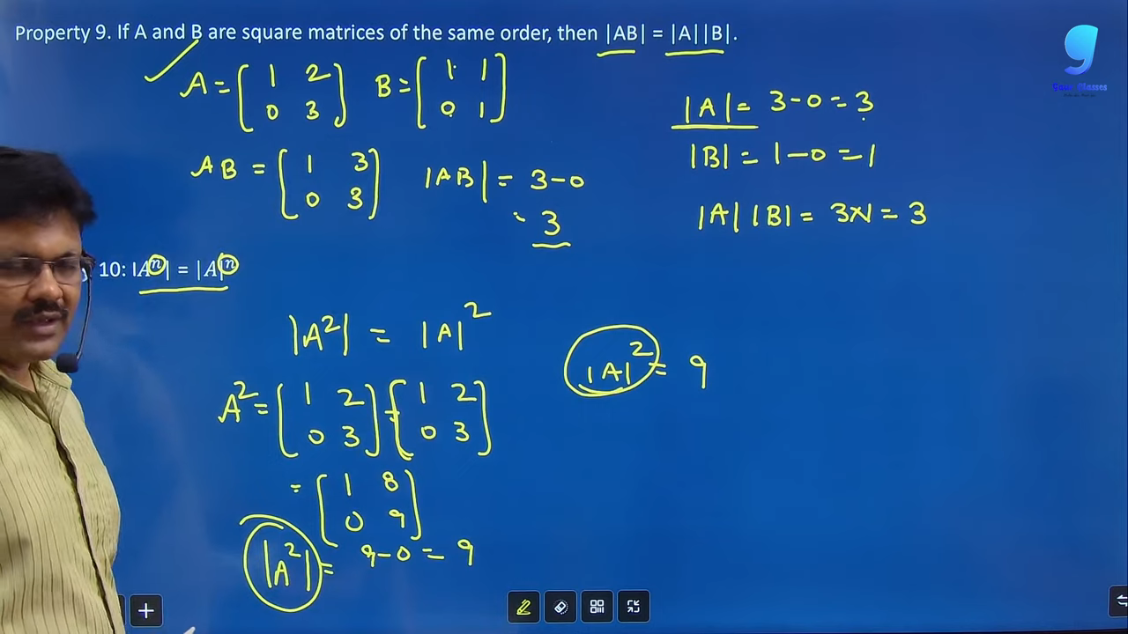 Property 9. If A and B are square matrices of the same order, then |AB| = |A||B|.
A = [1 2 B = [1 1
0 3] 0 1]
|A| = 3-0 = 3
|B| = 1-0 = 1
AB = [1 3
0 3]
|AB| = 3-0
= 3
|A| |B| = 3×1 = 3
10: |Aⁿ| = |A|ⁿ
|A²| = |A|²
|A|² = 9
A² = [1 2 [1 2
0 3] 0 3]
= [1 8
0 9]
|A²| = 9-0 = 9